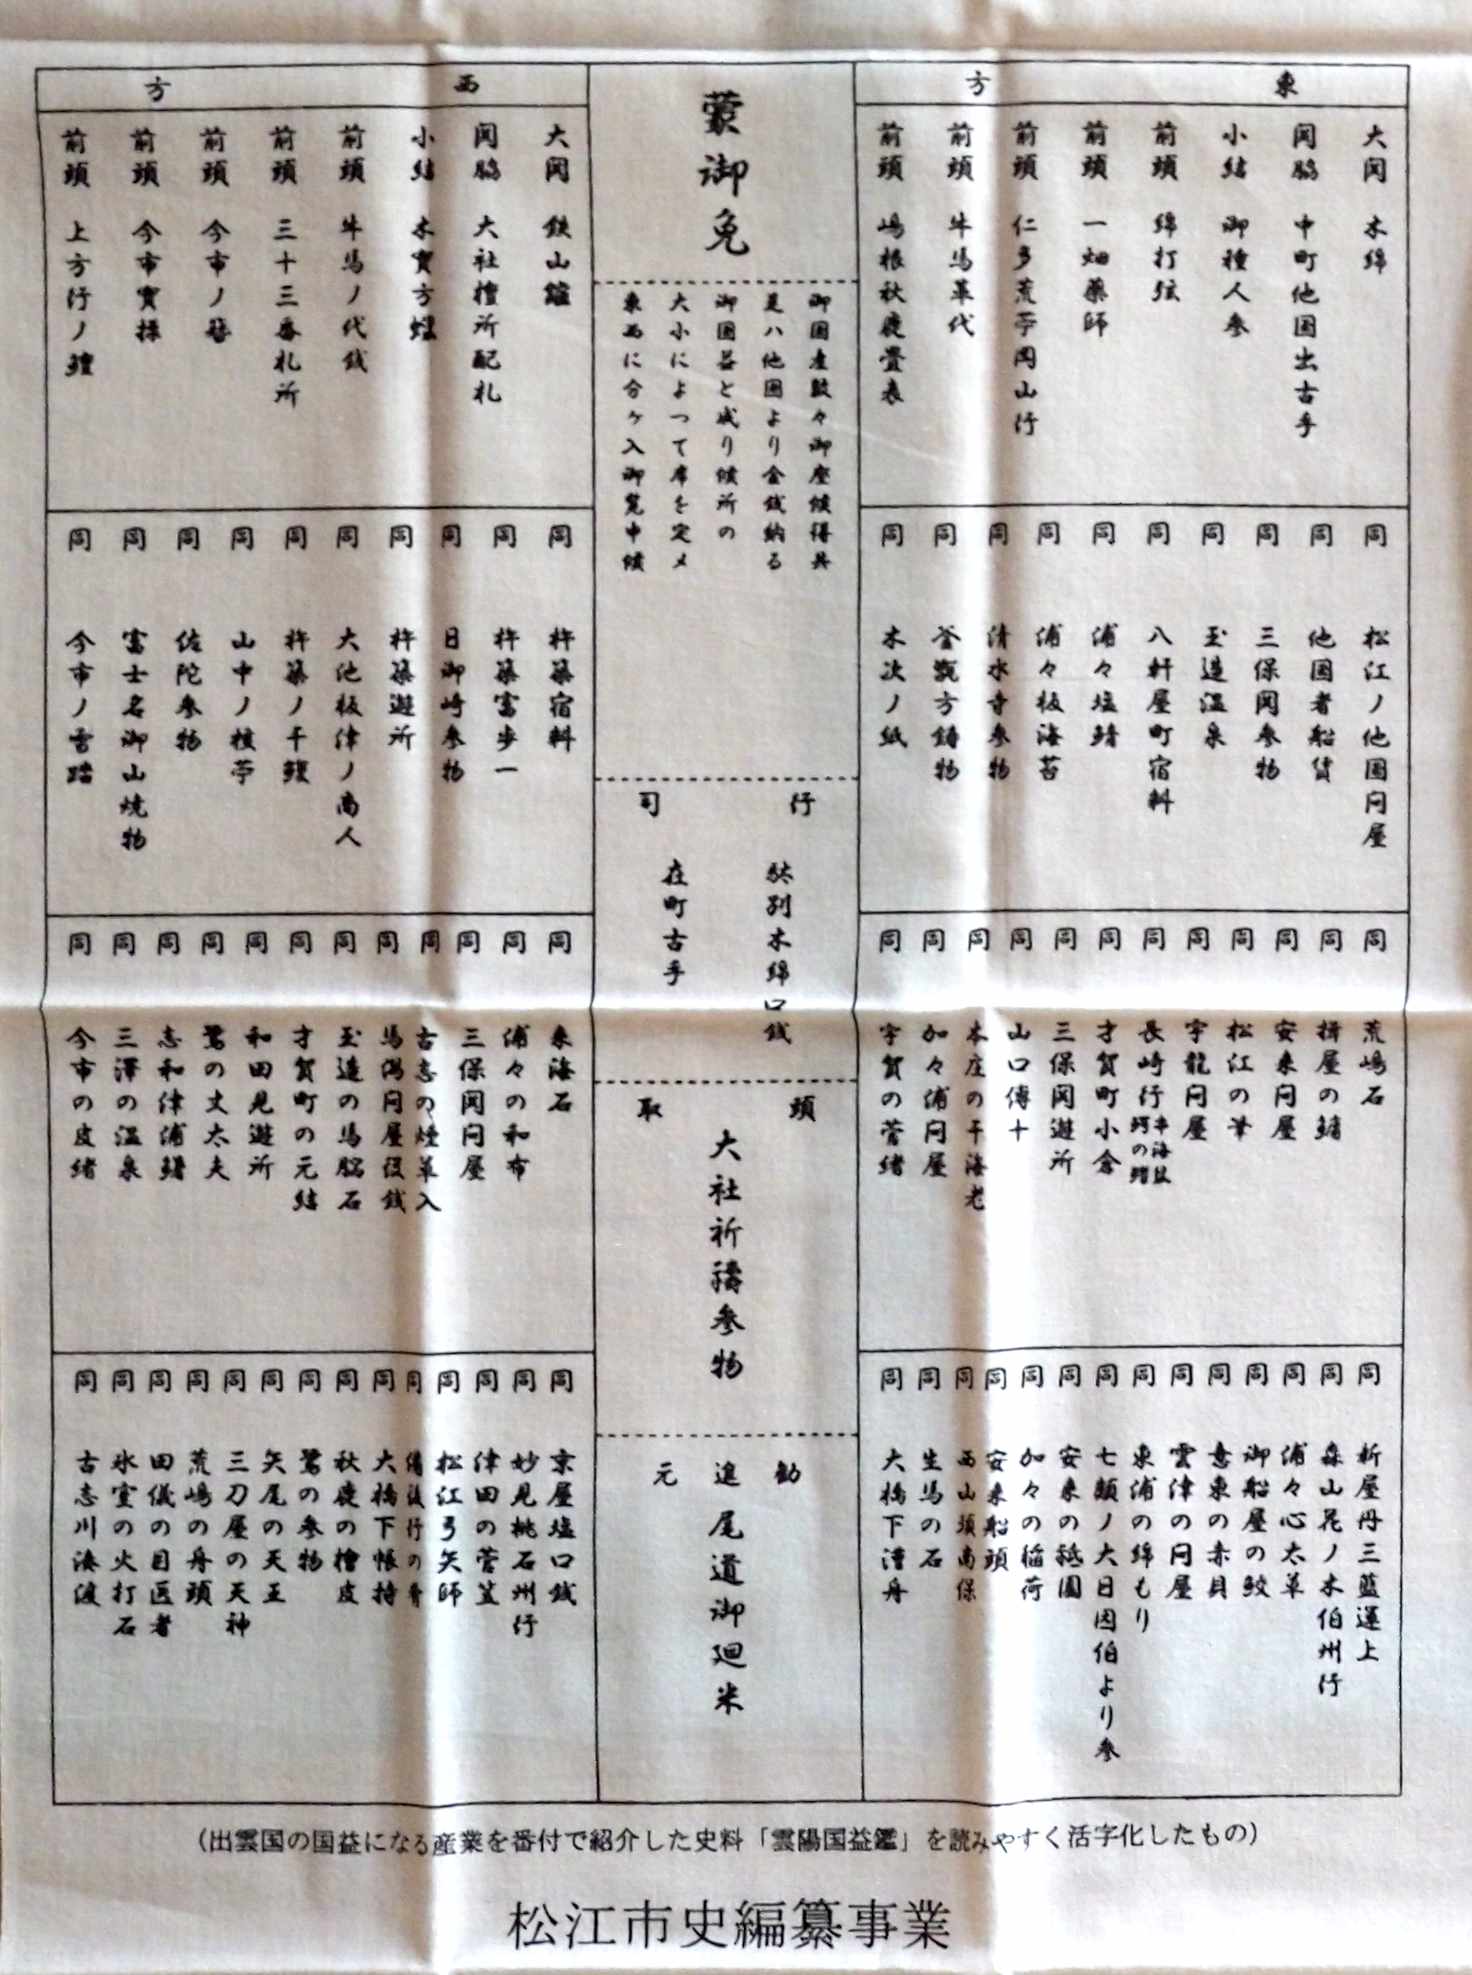 東方
大関 木綿
関脇 中町他国出古手
小結 御種人参
前頭 綿打弦
前頭 一畑薬師
前頭 仁多荒苧岡山行
前頭 牛馬革代
前頭 嶋根秋鹿畳表
同 松江ノ他国問屋
同 他国者船賃
同 三保関参物
同 玉造温泉
同 八軒屋町宿料
同 浦々塩鯖
同 浦々板海苔
同 清水寺参物
同 釜甑方鋳物
同 木次ノ紙
同 荒嶋石
同 揖屋の鯔
同 安来問屋
同 松江の筆
同 宇龍問屋
同 長崎行串海鼠 の
同 才賀町小倉
同 三保関遊所
同 山口傳十
同 本庄の干海老
同 加々浦問屋
同 宇賀の菅緒
同 新屋丹三藍運上
同 森山花ノ木伯州行
同 浦々心太草
同 御船屋の鮫
同 意東の赤貝
同 雲津の問屋
同 東浦の綿もり
同 七類ノ大日因伯より参
同 安来の祗園
同 加々の稲荷
同 安来船頭
同 西山須高保
同 生馬の石
同 大橋下漕舟
蒙御免
御国産数々御座候得共
是ハ他国より金銭納る
御国益と成り候所の
大小によつて席を定メ
東西に分ヶ入御覧申候
行司
駄別木綿口銭
在町古手
頭取
大社祈祷参物
勧進元
尾道御廻米
西方
大関 鉄山鑪
関脇 大社檀所配札
小結 木実方蠟
前頭 牛馬ノ代銭
前頭 三十三番札所
前頭 今市ノ
前頭 今市実綿
前頭 上方行ノ鱣
同 杵築宿料
同 杵築富歩一
同 日御崎参物
同 杵築遊所
同 大池板津ノ商人
同 杵築ノ干鰒
同 山中ノ扱苧
同 佐陀参物
同 富士名御山焼物
同 今市ノ雪踏
同 来海石
同 浦々の和布
同 三保関問屋
同 古志の煙草入
同 馬潟問屋役銭
同 玉造の馬脳石
同 才賀町の元結
同 和田見遊所
同 鷺の丈太夫
同 志和津浦鰭
同 三澤の温泉
同 今市の皮緒
同 京屋塩口銭
同 妙見桃石州行
同 津田の菅笠
同 松江弓矢師
同 備後行の
同 大橋下帳持
同 秋鹿の檜皮
同 鷺の参物
同 矢尾の天王
同 三刀屋の天神
同 荒嶋の舟頭
同 田儀の目医者
同 氷室の火打石
同 古志川湊渡
（出雲国の国益になる産業を番付で紹介した史料「雲陽国益鑑」を読みやすく活字化したもの）
松江市史編纂事業